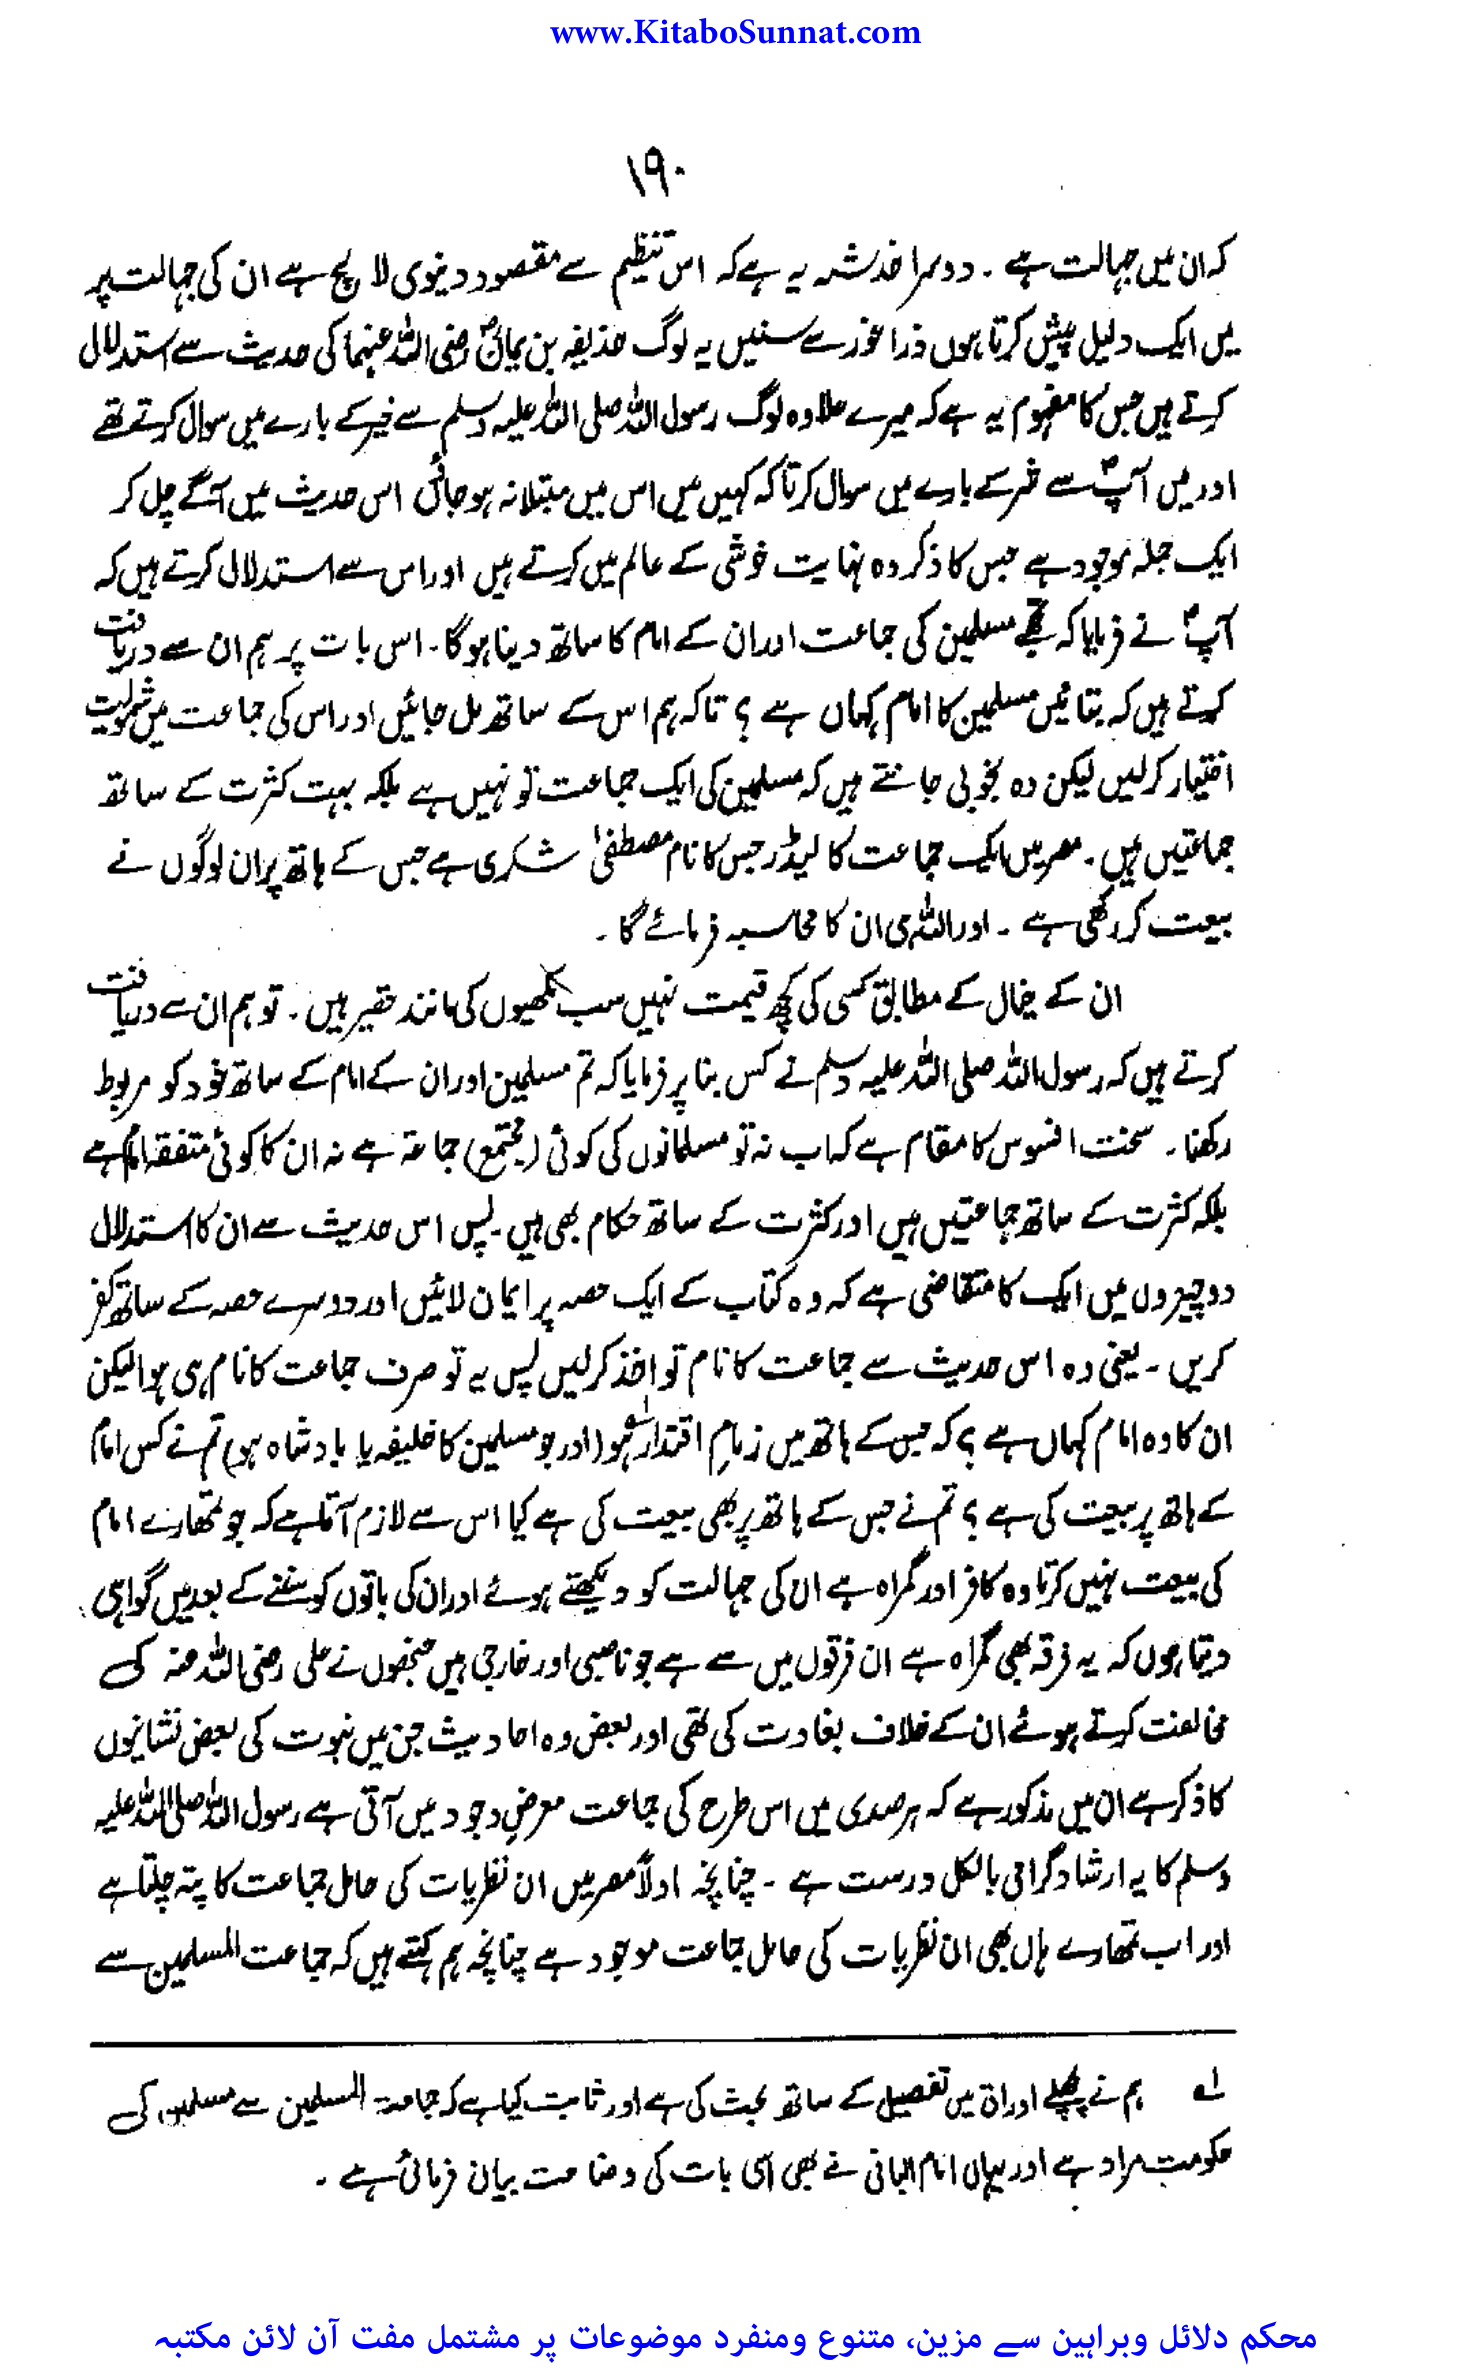 www.KitaboSunnat.com
۱۹۰
کہ ان میں جہالت ہے ۔ دوسرا خدشہ یہ ہے کہ اس تنظیم سے مقصود دنیوی لالچ ہے ان کی جہالت پر
میں ایک دلیل پیش کرتا ہوں ذرا غور سے سنیں یہ لوگ حذیفہ بن یمانؓ رضی اللہ عنہما کی حدیث سے استدلال
کرتے ہیں جس کا مفہوم یہ ہے کہ میرے علاوہ لوگ رسول اللہ صلی اللہ علیہ وسلم سے خیر کے بارے میں سوال کرتے تھے
اور میں آپؐ سے شر کے بارے میں سوال کرتا کہ کہیں میں اس میں مبتلا نہ ہو جاؤں اس حدیث میں آگے چل کر
ایک جملہ موجود ہے جس کا ذکر وہ نہایت خوشی کے عالم میں کرتے ہیں اور اس سے استدلال کرتے ہیں کہ
آپؐ نے فرمایا کہ تجھے مسلمین کی جماعت اور ان کے امام کا ساتھ دینا ہوگا۔ اس بات پر ہم ان سے دریافت
کرتے ہیں کہ بتائیں مسلمین کا امام کہاں ہے ؟ تاکہ ہم اس کے ساتھ مل جائیں اور اس کی جماعت میں شمولیت
اختیار کر لیں لیکن وہ بخوبی جانتے ہیں کہ مسلمین کی ایک جماعت تو نہیں ہے بلکہ بہت کثرت کے ساتھ
جماعتیں ہیں ۔ مصر میں ایک جماعت کا لیڈر جس کا نام مصطفیٰ شکری ہے جس کے ہاتھ پر ان لوگوں نے
بیعت کر رکھی ہے ۔ اور اللہ ہی ان کا محاسبہ فرمائے گا ۔
ان کے خیال کے مطابق کسی کی کچھ قیمت نہیں سب مکھیوں کی مانند حقیر ہیں ۔ تو ہم ان سے دریافت
کرتے ہیں کہ رسول اللہ صلی اللہ علیہ وسلم نے کس بنا پر فرمایا کہ تم مسلمین اور ان کے امام کے ساتھ خود کو مربوط
رکھنا ۔ سخت افسوس کا مقام ہے کہ اب نہ تو مسلمانوں کی کوئی (مجتمع) جماعۃ ہے نہ ان کا کوئی متفقہ امام ہے
بلکہ کثرت کے ساتھ جماعتیں ہیں اور کثرت کے ساتھ حکام بھی ہیں ۔ پس اس حدیث سے ان کا استدلال
دو چیزوں میں ایک کا متقاضی ہے کہ وہ کتاب کے ایک حصہ پر ایمان لائیں اور دوسرے حصہ کے ساتھ کفر
کریں ۔ یعنی وہ اس حدیث سے جماعت کا نام تو اخذ کر لیں پس یہ تو صرف جماعت کا نام ہی ہوا لیکن
ان کا وہ امام کہاں ہے ؟ کہ جس کے ہاتھ میں زمامِ اقتدار ہو لہ (اور جو مسلمین کا خلیفہ یا بادشاہ ہو) تم نے کس امام
کے ہاتھ پر بیعت کی ہے ؟ تم نے جس کے ہاتھ پر بھی بیعت کی ہے کیا اس سے لازم آتا ہے کہ جو تمھارے امام
کی بیعت نہیں کرتا وہ کافر اور گمراہ ہے ان کی جہالت کو دیکھتے ہوئے اور ان کی باتوں کو سننے کے بعد میں گواہی
دیتا ہوں کہ یہ فرقہ بھی گمراہ ہے ان فرقوں میں سے ہے جو ناصبی اور خارجی ہیں جنھوں نے علی رضی اللہ عنہ کی
مخالفت کرتے ہوئے ان کے خلاف بغاوت کی تھی اور بعض وہ احادیث جن میں نبوت کی بعض نشانیوں
کا ذکر ہے ان میں مذکور ہے کہ ہر صدی میں اس طرح کی جماعت معرضِ وجود میں آتی ہے رسول اللہ صلی اللہ علیہ
وسلم کا یہ ارشاد گرامی بالکل درست ہے ۔ چنانچہ اولاً مصر میں ان نظریات کی حامل جماعت کا پتہ چلتا ہے
اور اب تمھارے ہاں بھی ان نظریات کی حامل جماعت موجود ہے چنانچہ ہم کہتے ہیں کہ جماعت المسلمین سے
لہ ہم نے پچھلے اوراق میں تفصیل کے ساتھ بحث کی ہے اور ثابت کیا ہے کہ جماعۃ المسلمین سے مسلمین کی
حکومت مراد ہے اور یہاں امام البانی نے بھی اسی بات کی وضاحت بیان فرمائی ہے ۔
محکم دلائل وبراہین سے مزین، متنوع ومنفرد موضوعات پر مشتمل مفت آن لائن مکتبہ